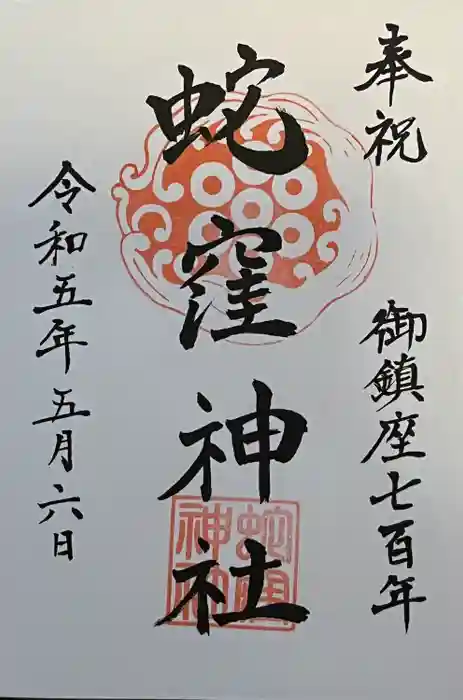 奉祝
御鎮座七百年
蛇窪神社
令和五年五月六日